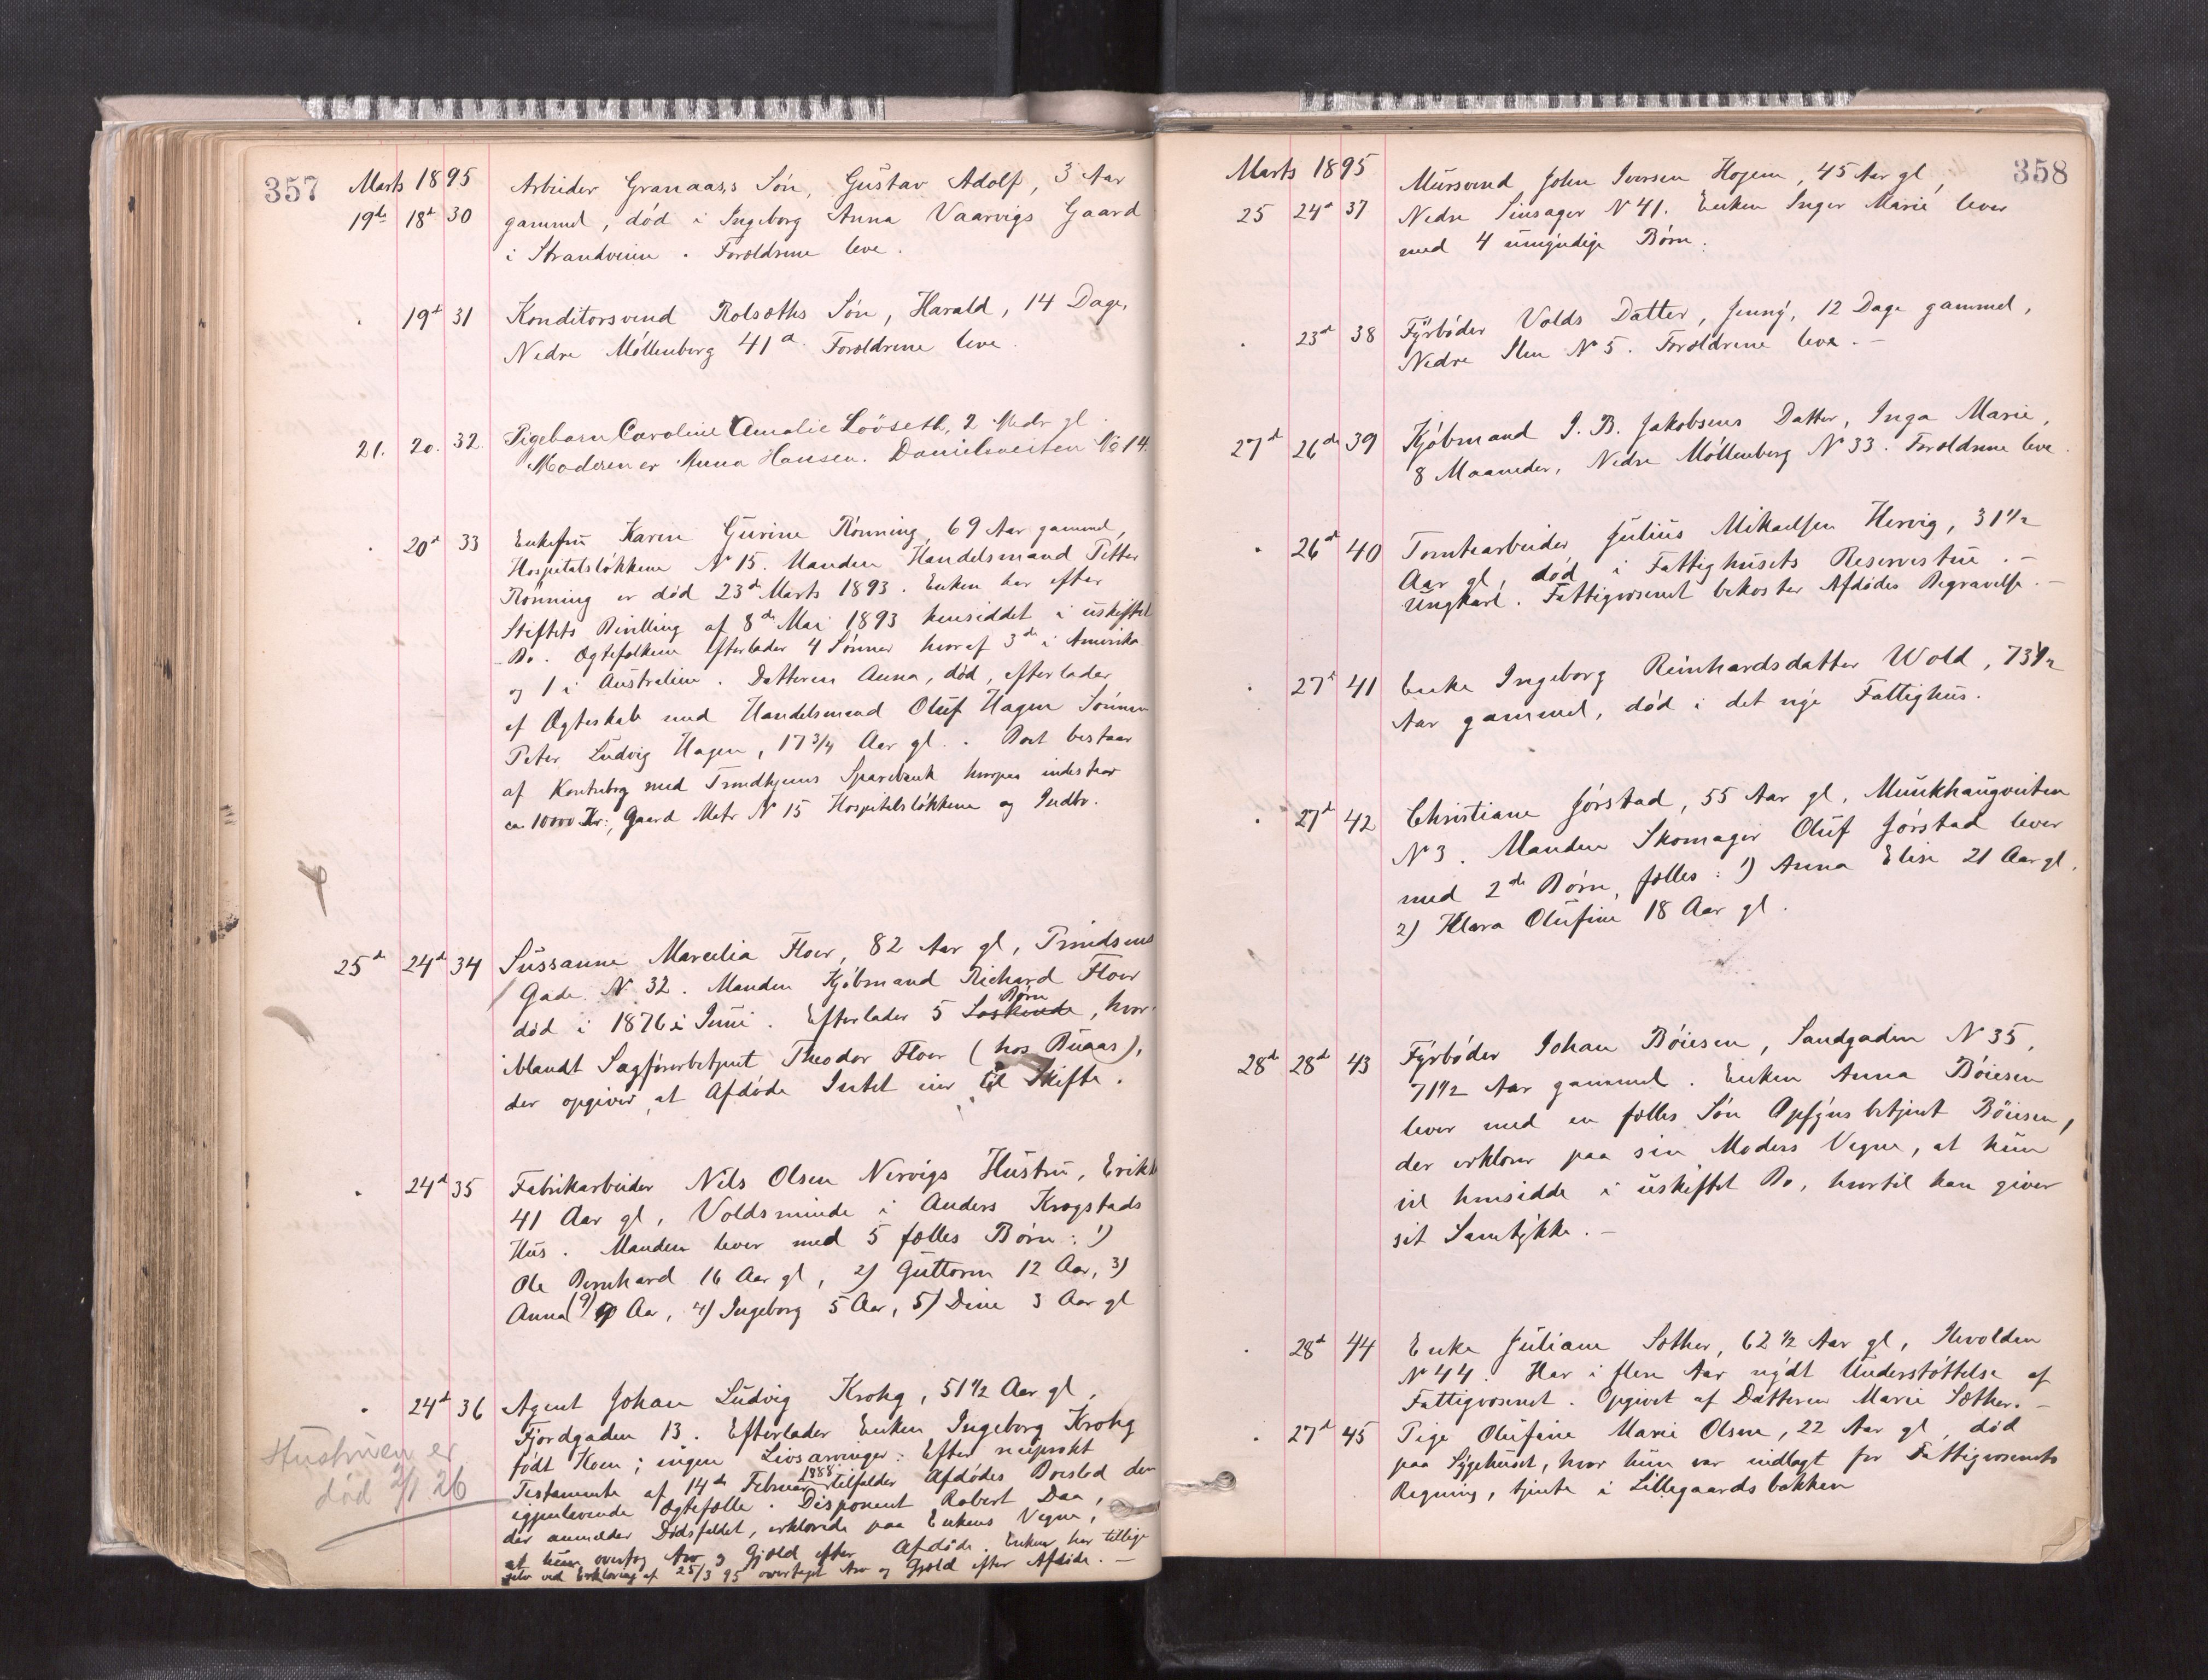 357 Marts 1895
19de 18d 30 Arbeider Granaas's Søn, Gustav Adolf, 3 Aar
gammel, død i Ingeborg Anna Vaarvigs Gaard
i Strandveien. Forældrene leve.
" 19d 31 Konditorsvend Rolseths Søn, Harald, 14 Dage,
Nedre Møllenberg 41a. Forældrene leve.
21. 20. 32. Pigebarn Caroline Amalie Lööseth, 2 Mdr gl.
Moderen er Anna Hansen. Danielsveiten No 14.
" 20d 33 Enkefru Karen Gurine Rönning, 69 Aar gammel,
Hospitalsløkkene N 15. Manden Handelsmand Petter
Rönning er död 23de Marts 1893. Enken har efter
Stiftets Bevilling af 8de Mai 1893 hensiddet i uskiftet
Bo. Ægtefolkene efterlader 4 Sønner hvoraf 3de i Amerika
og 1 i Australien. Datteren Anna, död, efterlader
af Ægteskab med Handelsmand Oluf Hagen Sönnen
Peter Ludvig Hagen, 17 3/4 Aar gl. Boet bestaar
af Kontrabog med Trondhjems Sparebank hvorpaa indestaar
ca 10000 Kr., Gaard Matr N 15 Hospitalsløkkene og Indbo.
25d 24d 34 Sussanne Marcelia Floer, 82 Aar gl, Prindsens
Gade N 32. Manden Kjøbmand Richard Floer
død i 1876 i Juni. Efterlader 5 Søskende Børn, hvor-
iblandt Sagførerbetjent Theodor Floer (hos Buaas),
der opgiver, at Afdøde Intet eier til Skifte.
" 24d 35 Fabrikarbeider Nils Olsen Nervigs Hustru, Erikk
41 Aar gl, Voldsminde i Anders Krogstads
Hus. Manden lever med 5 fælles Børn: 1)
Ole Bernhard 16 Aar gl, 2) Guttorm 12 Aar, 3)
Anna (9) 9 Aar, 4) Ingeborg 5 Aar, 5) Dine 3 Aar gl
" 24d 36 Agent Johan Ludvig Krohg, 51 1/2 Aar gl,
Fjordgaden 13. Efterlader Enken Ingeborg Krohg
født Hoem; ingen Livsarvinger. Efter
Testamente af 14de Februar 1888 tilfalder Afdødes Boslod den
igjenlevende Ægtefælle. Disponent Robert Daa,
der anmelder Dødsfaldet, erklærede paa Enkens Vegne,
at hun overtog Arv og Gjæld efter Afdøde. Enken har tillige
selv ved Erklæring af 25/3 95 overtaget Arv og Gjæld efter Afdøde. –
Hustruen er
død 2/1 26
Marts 1895 358
25 24d 37 Mursvend John Iversen Hogem, 45 Aar gl,
Nedre Sinsager N 41. Enken Inger Marie lever
med 4 umyndige Børn.
" 23d 38 Fyrbøder Volds Datter, Jenny, 12 Dage gammel,
Nedre Ilen N 5. Forældrene leve. –
27d 26de 39 Kjøbmand I. B. Jakobsens Datter, Inga Marie,
8 Maaneder, Nedre Møllenberg N 33. Forældrene leve.
" 26d 40 Tomtearbeider Julius Mikaelsen Hervig, 31 1/2
Aar gl, død i Fattighusets Reservestue. –
Ungkarl. Fattigvæsenet bekoster Afdødes Begravelse. –
" 27d 41 Enke Ingeborg Reinhardsdatter Wold, 73 1/2
Aar gammel, død i det nye Fattighus.
" 27d 42 Christiane Jørstad, 55 Aar gl, Munkhaugveiten
N 3. Manden Skomager Oluf Jørstad lever
med 2de Børn, fælles: 1) Anna Elise 21 Aar gl,
2) Klara Olufine 18 Aar gl.
28d 28d 43 Fyrbøder Johan Bøiesen, Sandgaden N 35,
71 1/2 Aar gammel. Enken Anna Bøiesen
lever med en fælles Søn Opsynsbetjent Bøiesen,
der erklærer paa sin Moders Vegne, at hun
vil hensidde i uskiftet Bo, hvortil han giver
sit Samtykke. –
" 28d 44 Enke Juliane Sæther, 62 1/2 Aar gl, Ilevolden
N 44. Har i flere Aar nydt Understøttelse af
Fattigvæsenet. Opgivet af Datteren Marie Sæther. –
" 27d 45 Pige Olufine Marie Olsen, 22 Aar gl, død
paa Sygehuset, hvor hun var indlagt for Fattigvæsenets
Regning, tjente i Lillegaardsbakken